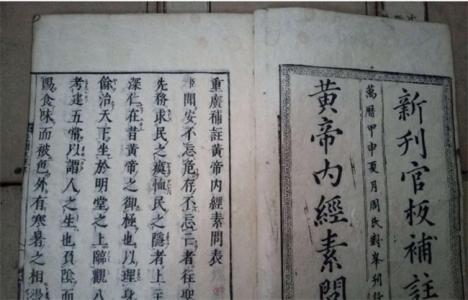 新刊官板補註
萬曆甲申夏月周氏對峯刊
黃帝內經素問
重廣補註黃帝內經素問表
臣聞安不忘危存不忘亡者往聖
先務求民之瘼恤民之隱者上主
深仁在昔黃帝之御極也以理身
餘治天下坐於明堂之上臨觀八
考建五常以謂人之生也負陰而
陽食味而被色外有寒暑之相盪